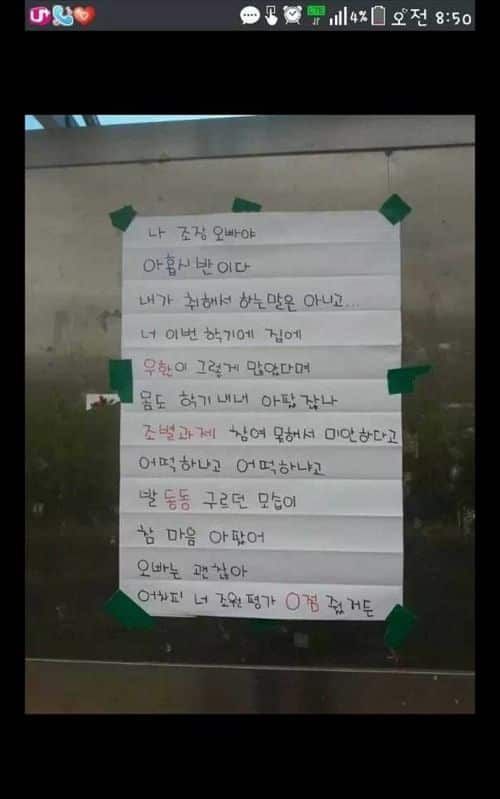 4% 오전 8:50
나 조장 오빠야
아홉시 반이다
내가 취해서 하는말은 아니고...
너 이번 학기에 집에
우환이 그렇게 많았다며
몸도 학기내내 아팠잖니
조별과제 참여 못해서 미안하다고
어떡하냐고 어떡하냐고
발 동동 구르던 모습이
참 마음 아팠어
오빠는 괜찮아
어차피 너 조원평가 0점 줬거든